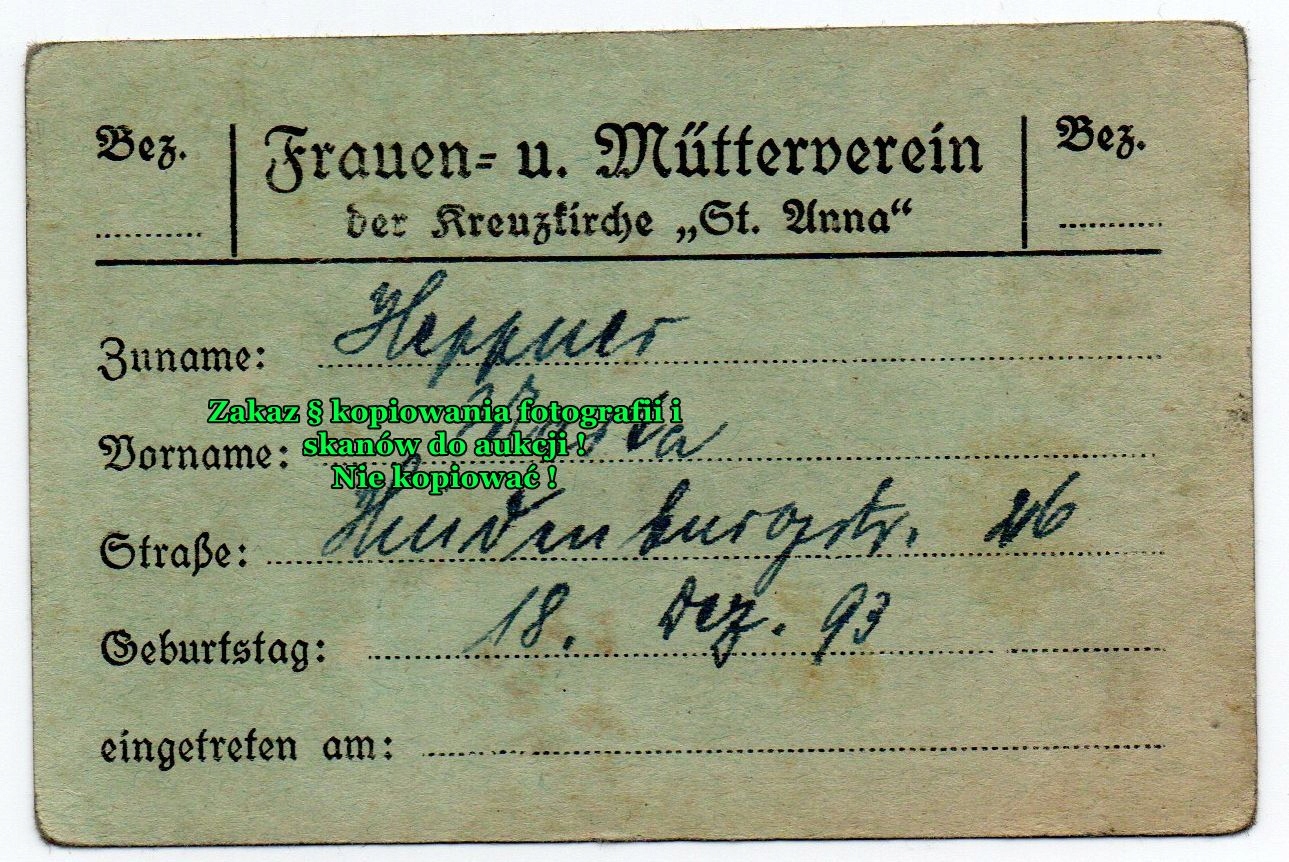 Bez.
Frauen= u. Mütterverein
Bez.
der Kreuzkirche „St. Anna“
Zuname: Heppner
Zakaz § kopiowania fotografii i
Vorname:
skanów do aukcji !
Nie kopiować !
Straße: Hindenburgstr.
Geburtstag: 18. Dez. 93
eingetreten am: